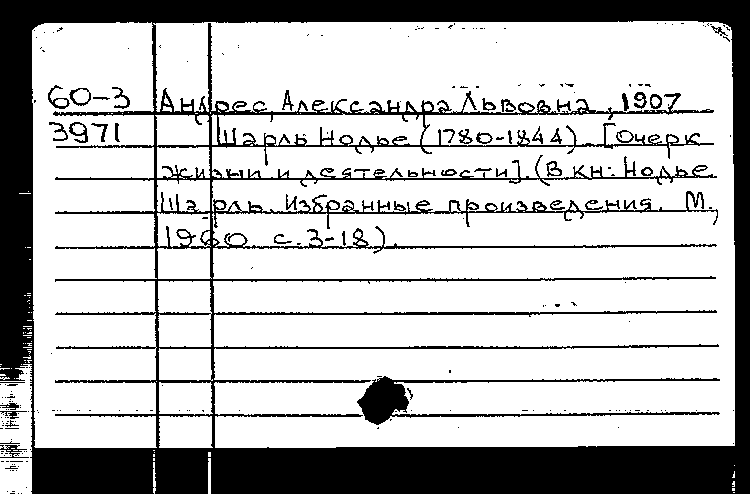 60-3 Андрес, Александра Львовна, 1907
3971 Шарль Нодье (1780-1844). [Очерк
жизни и деятельности]. (В кн: Нодье
Шарль. Избранные произведения. М.,
1960. с. 3-18).